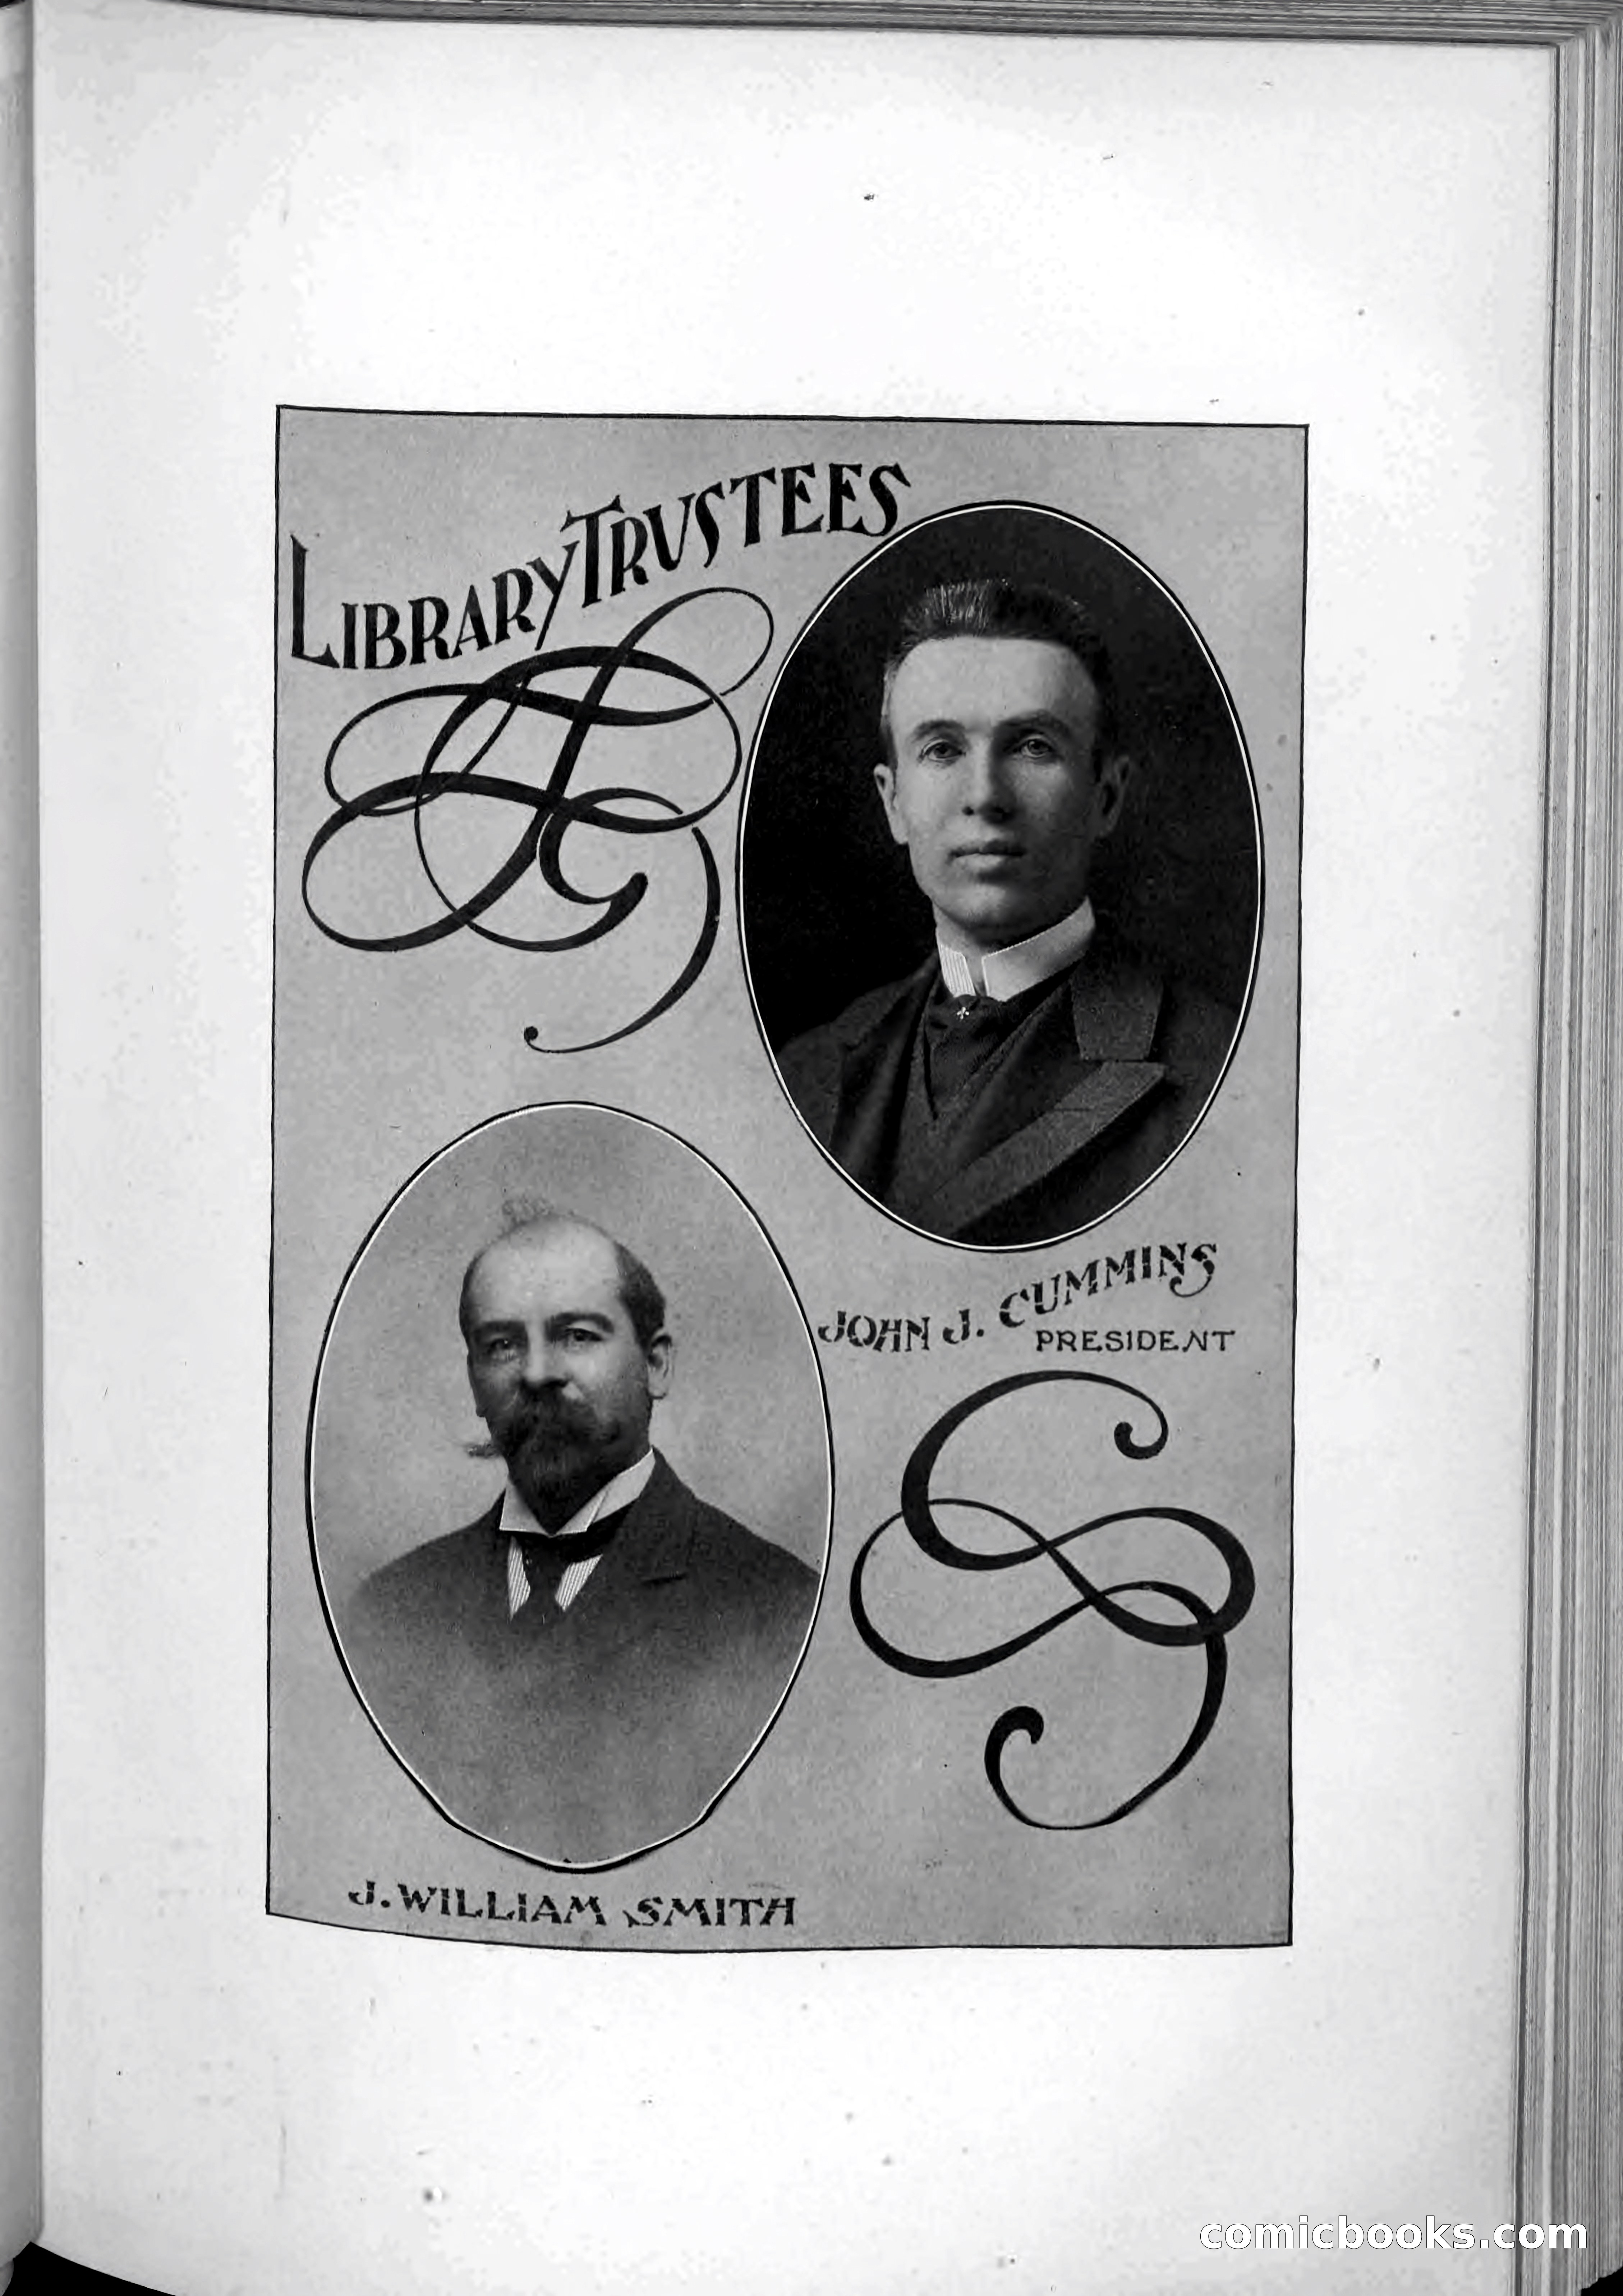 LIBRARY TRUSTEES
JOHN J. CUMMINS
PRESIDENT
J. WILLIAM SMITH
comicbooks.com